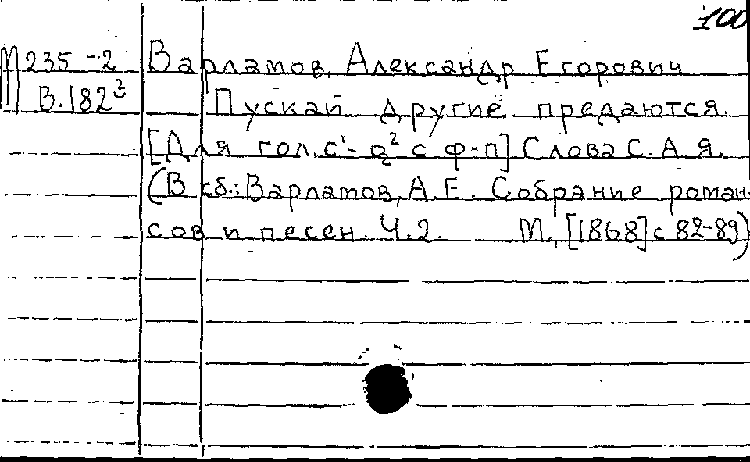 100
М 235-2 Варламов, Александр Егорович
В.182² Пускай другие предаются.
[Для гол. c¹-g² с ф-п] Слова С.А.Я.
(В сб.: Варламов, А.Е. Собрание роман-
сов и песен. Ч.2. М., [1868] с 82-89)